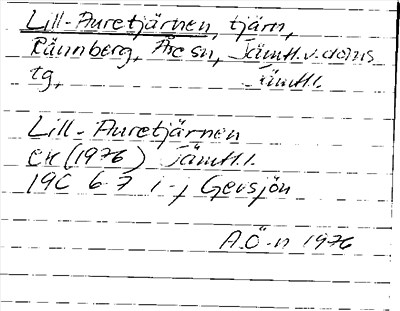 Lill-Auretjärnen, tjärn,
Rännberg, Åre sn, Jämtl. v. doms
tg, Jämtl. l.
Lill-Auretjärnen
EK (1976) Jämtl. l.
19C 6-7 i-j Gevsjön
A.Ö-n 1976